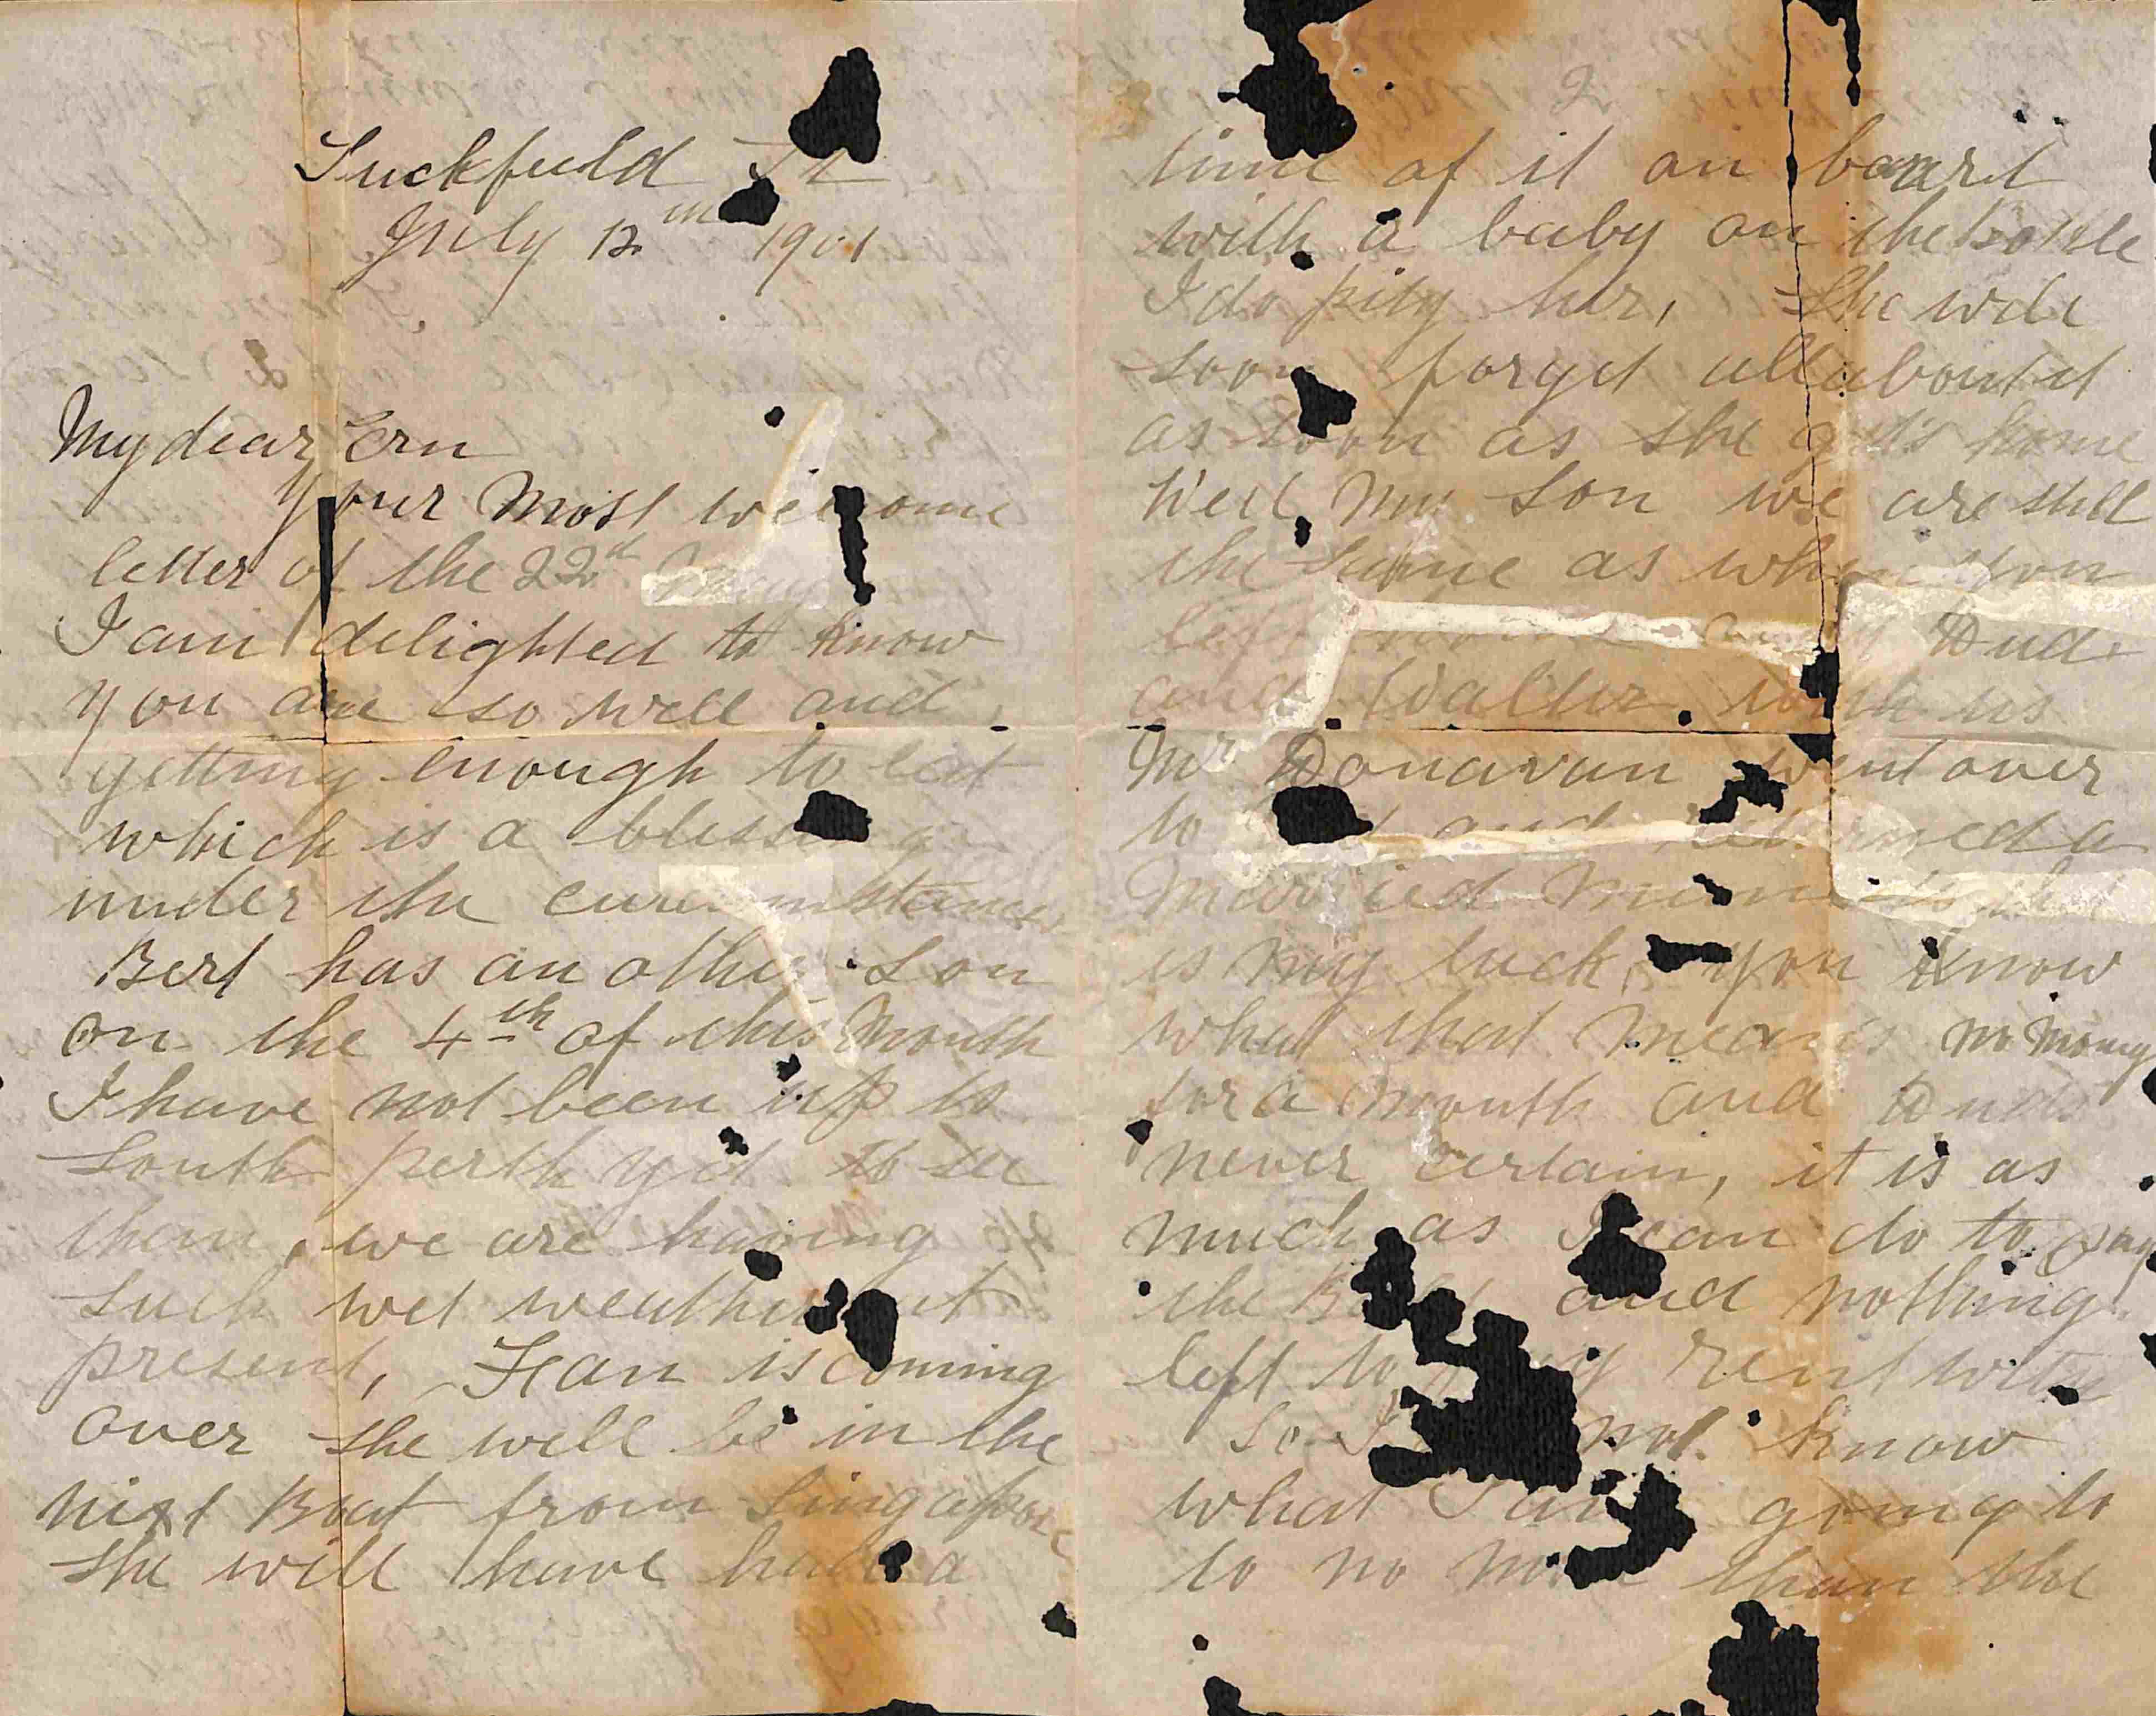 Suckfield St
July 12th 1901
My dear Ern
Your most welcome
letter of the 22d May
I am delighted to know
you are so well and
getting enough to eat
which is a blessing
under the curcumstances
Bert has an other Son
on the 4th of this Month
I have not been up to
South perth yet to see
them, we are having
such wet weather at
present, Fran is coming
over she will be in the
next Boat from Singapore
she will have had a
2
time of it on board
with a baby on the Bottle
I do pity her, She will
soon forget all about it
as soon as she gets home
Well my Son we are still
the same as when you
left home only Dude
and Walter with us
Mr Donavan went over
to and returned a
Married Man is the
is my luck, you know
what that means no money
for a month and Duds
never certain, it is as
much as I can do to pay
the and nothing
left to pay rent with
so I not know
what I am going to
to no more than the